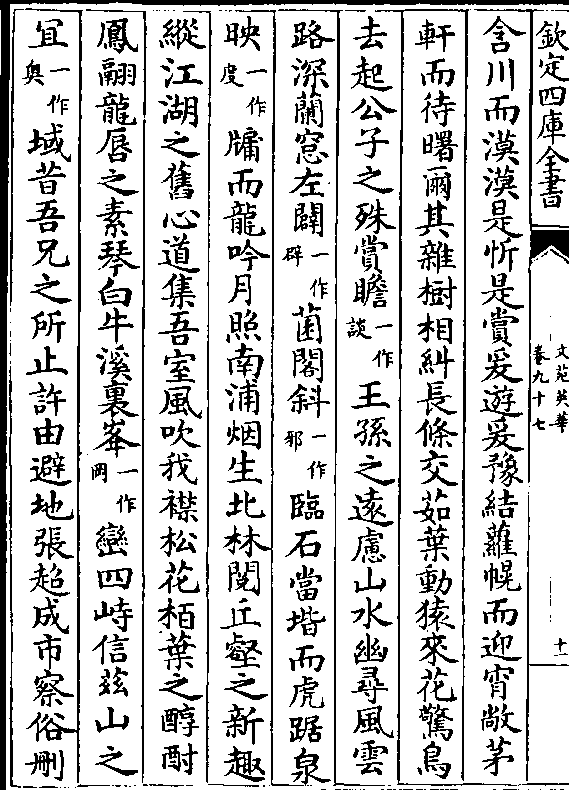 欽定四庫全書
文苑英華
卷九十七
十一
含川而漠漠是忻是賞爰遊爰豫結蘿幌而迎宵敞茅
軒而待曙爾其雜樹相糾長條交茹葉動猿來花驚鳥
去起公子之殊賞瞻一作談王孫之遠慮山水幽尋風雲
路深蘭窓左闢一作辟菌閣斜一作邪臨石當堦而虎踞泉
映一作度牗而龍吟月照南浦烟生北林閱丘壑之新趣
縱江湖之舊心道集吾室風吹我襟松花栢葉之醇酎
鳳翮龍唇之素琴白牛溪裏峯一作岡巒四峙信茲山之
宜一作奥域昔吾兄之所止許由避地張超成市察俗刪